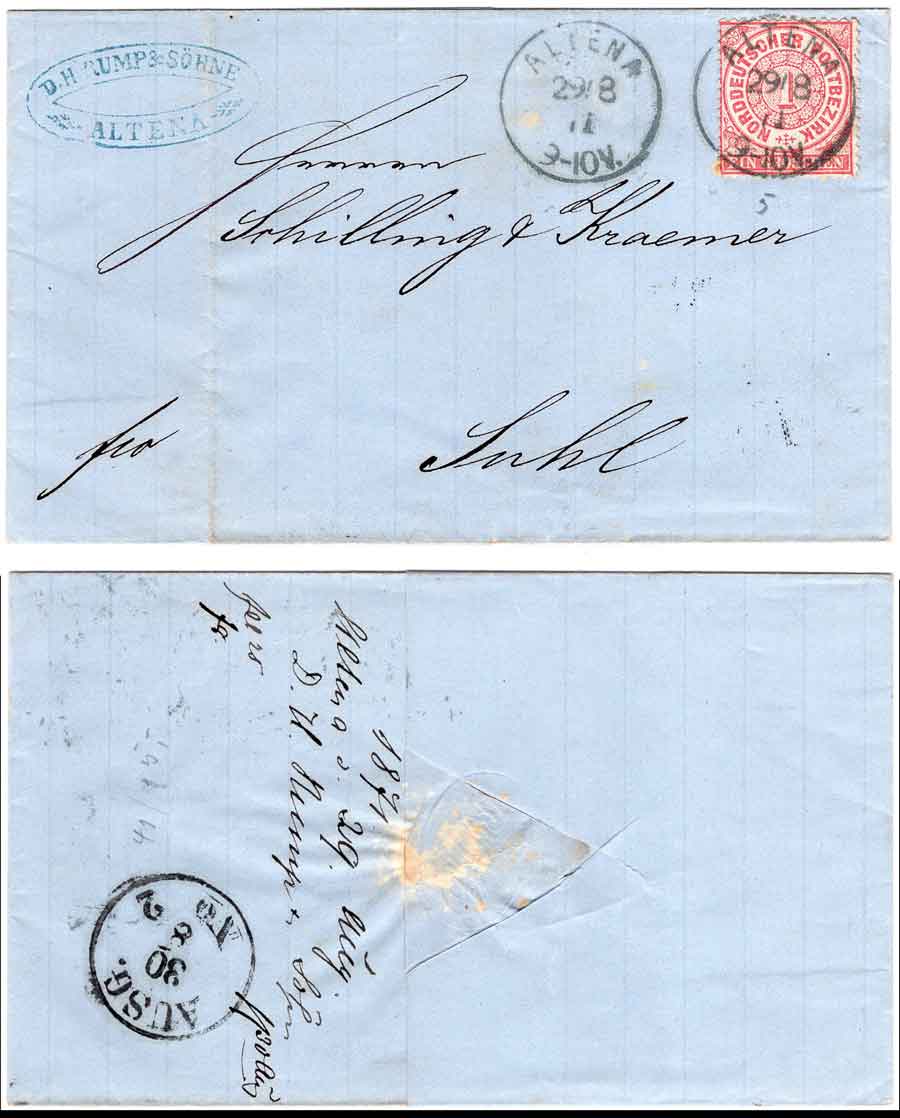 D.H. RUMP & SÖHNE
ALTENA
ALTENA
29/8
71
9-10V.
NORDDEUTSCHER POSTBEZIRK
1
ALTENA
29/8
71
9-10V.
5
Herren
Schilling & Kraemer
fco
Suhl
1871
Altena d. 29. Aug.
D. H. Rump & Söhne
AUSG.
30
8
2
No